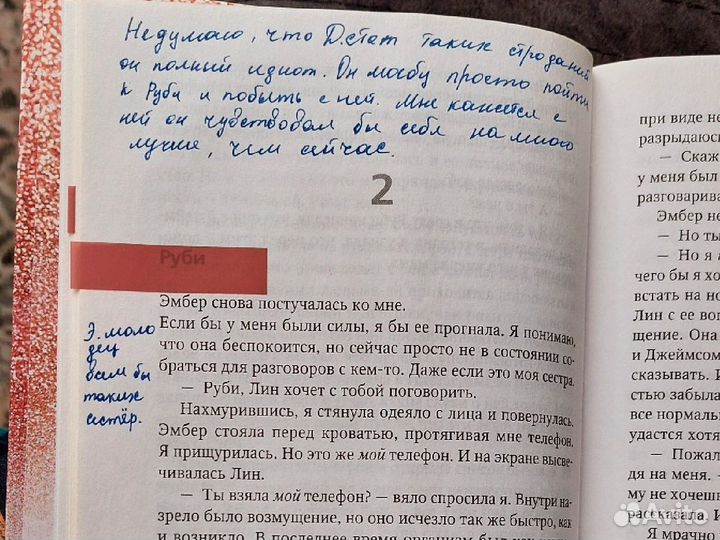 Недумаю, что Д. стат таких строданий
он полный идиот. Он могбу просто пойти
к Руби и побыть с ней. Мне кажется с
ней он чувствовал бы себя на много
лучше, чем сейчас.
2
Руби
Эмбер снова постучалась ко мне.
Если бы у меня были силы, я бы ее прогнала. Я понимаю,
что она беспокоится, но сейчас просто не в состоянии со-
браться для разговоров с кем-то. Даже если это моя сестра.
— Руби, Лин хочет с тобой поговорить.
Нахмурившись, я стянула одеяло с лица и повернулась.
Эмбер стояла перед кроватью, протягивая мне телефон.
Я прищурилась. Но это же мой телефон. И на экране высве-
чивалась Лин.
— Ты взяла мой телефон? — вяло спросила я. Внутри на-
зрело было возмущение, но оно исчезло так же быстро, как
и возникло. В последнее время организм был как
Э. моло
дец
всем бы
таких
сестёр.
при виде не
разрыдаюсь
— Скаж
у меня был
разговарива
Эмбер не
— Но ты
— Но я
чего бы я хо
встать на но
Лин с ее воп
щение. Они
и Джеймсом
сказывать. И
стью забыла
все нормаль
удастся хотя
— Пожал
дя на меня. —
му не хочеш
рассказала. И
Я мрачно
Avito